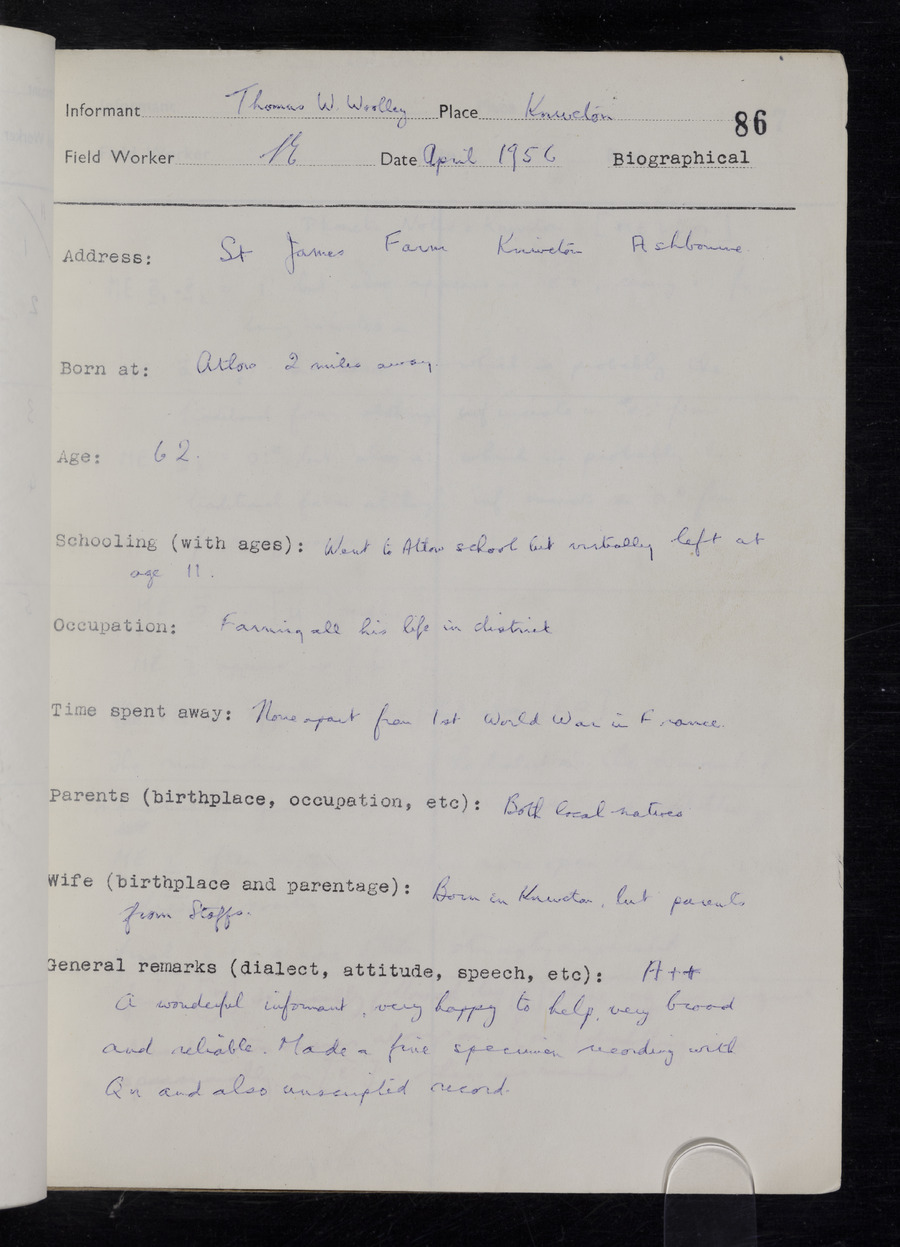 Informant Thomas W. Woolley Place Kniveton 86
Field Worker SE Date April 1956 Biographical
Address: St James Farm Kniveton Ashbourne
Born at: Atlow 2 miles away.
Age: 62.
Schooling (with ages): Went to Atlow school but virtually left at
age 11.
Occupation: Farming all his life in district
Time spent away: None apart from 1st World War in France.
Parents (birthplace, occupation, etc): Both local natives
Wife (birthplace and parentage): Born in Kniveton, but parents
from Staffs.
General remarks (dialect, attitude, speech, etc): A++
A wonderful informant, very happy to help, very broad
and reliable. Made a fine specimen recording with
Qn and also unscripted record.